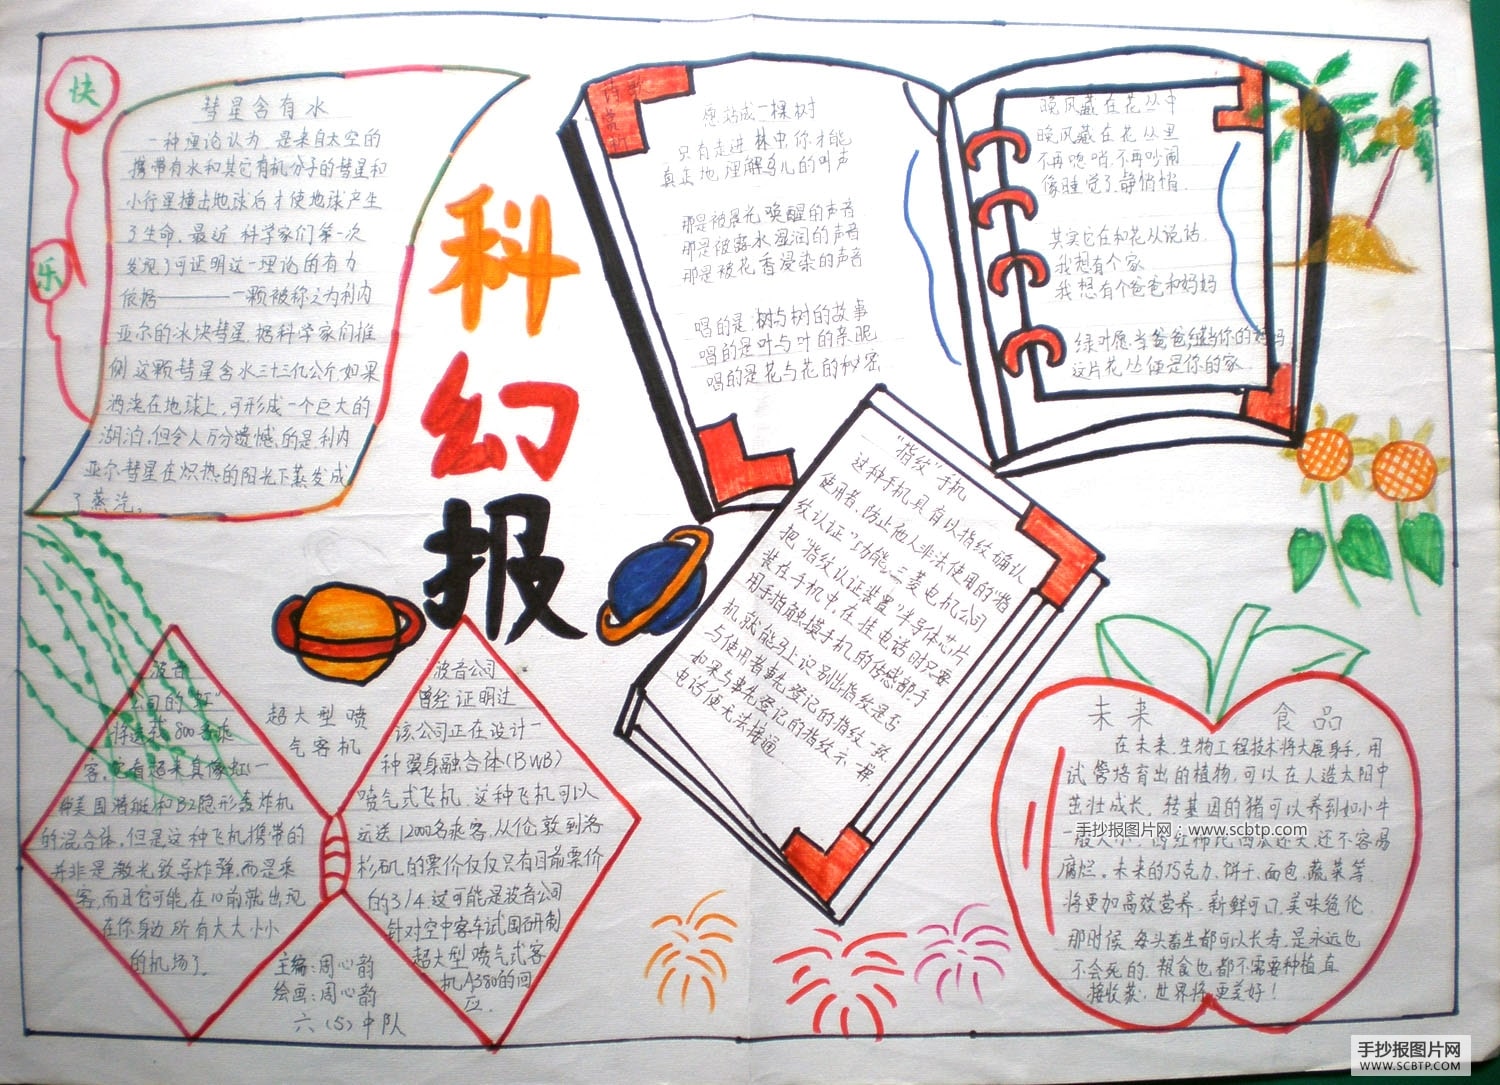 快
乐
彗星含有水
一种理论认为 是来自太空的
携带有水和其它有机分子的彗星和
小行星撞击地球后才使地球产生
了生命。最近 科学家们第一次
发现了可证明这一理论的有力
依据————一颗被称之为利内
亚尔的冰块彗星.据科学家们推
侧 这颗彗星含水三十三亿公斤,如果
洒浇在地球上,可形成一个巨大的
湖泊.但令人万分遗憾.的是.利内
亚尔彗星在炽热的阳光下蒸发成
了蒸汽。
科
幻
报
愿站成一棵树
只有走进 林中,你才能
真正地 理解鸟儿的叫声
那是被晨光唤醒的声音
那是被露水湿润的声音
那是被花香浸染的声音
唱的是.树与树的故事
唱的是叶与叶的亲昵
唱的是花与花的秘密
晚风藏在花丛中
晚风藏在花丛里
不再咆哨.不再吵闹
像睡觉了.静悄悄.
其实它在和花从说话.
我想有个家
我想有个爸爸和妈妈
绿叶愿当爸爸 当你的妈妈
这片花丛便是你的家.
"指纹"手机
这种手机具有以指纹确认
使用者、防止他人非法使用的"指
纹认证"功能.三菱电机公司
把"指纹认证装置"半导体芯片
装在手机中.在挂电话时只要
用手指触摸手机的传感部.手
机就能马上识别出指纹是否
与使用者事先登记的指纹一致
如果与事先登记的指纹不一样
电话便无法接通.
波音
公司的"虹"
将运载800名乘
客,它看起来真像虹一
种美国潜艇和B2隐形轰炸机
的混合体.但是这种飞机携带的
并非是激光致导炸弹.而是乘
客.而且它可能在10前就出现
在你身边.所有大大小小
的机场了.
超大型喷
气客机
波音公司
曾经证明过
该公司正在设计一
种翼身融合体(BWB)
喷气式飞机.这种飞机可以
运送1200名乘客.从伦敦到洛
杉矶的票价仅仅只有目前票价
的3/4.这可能是波音公司
针对空中客车试图研制
超大型喷气式客
机A380的回
应.
主编:周心韵
绘画:周心韵
六(5)中队
未来 食品
在未来.生物工程技术将大展身手.用
试管培育出的植物.可以在人造太阳中
茁壮成长. 转基因的猪可以养到如小牛
手抄报图片网:www.scbtp.com
一般大小.西红柿比西瓜还大.还不容易
腐烂.未来的巧克力.饼干.面包.蔬菜等.
将更加高效营养.新鲜可口.美味绝伦.
那时候.每头畜生都可以长寿.是永远也
不会死的.粮食也都不需要种植.直
接收获.世界将更美好!
手抄报图片网
WWW.SCBTP.COM